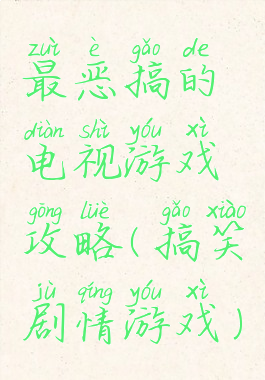 zuì è gǎo de
最恶搞的
diàn shì yóu xì
电视游戏
gōng lüè gǎo xiào
攻略(搞笑
jù qíng yóu xì
剧情游戏)